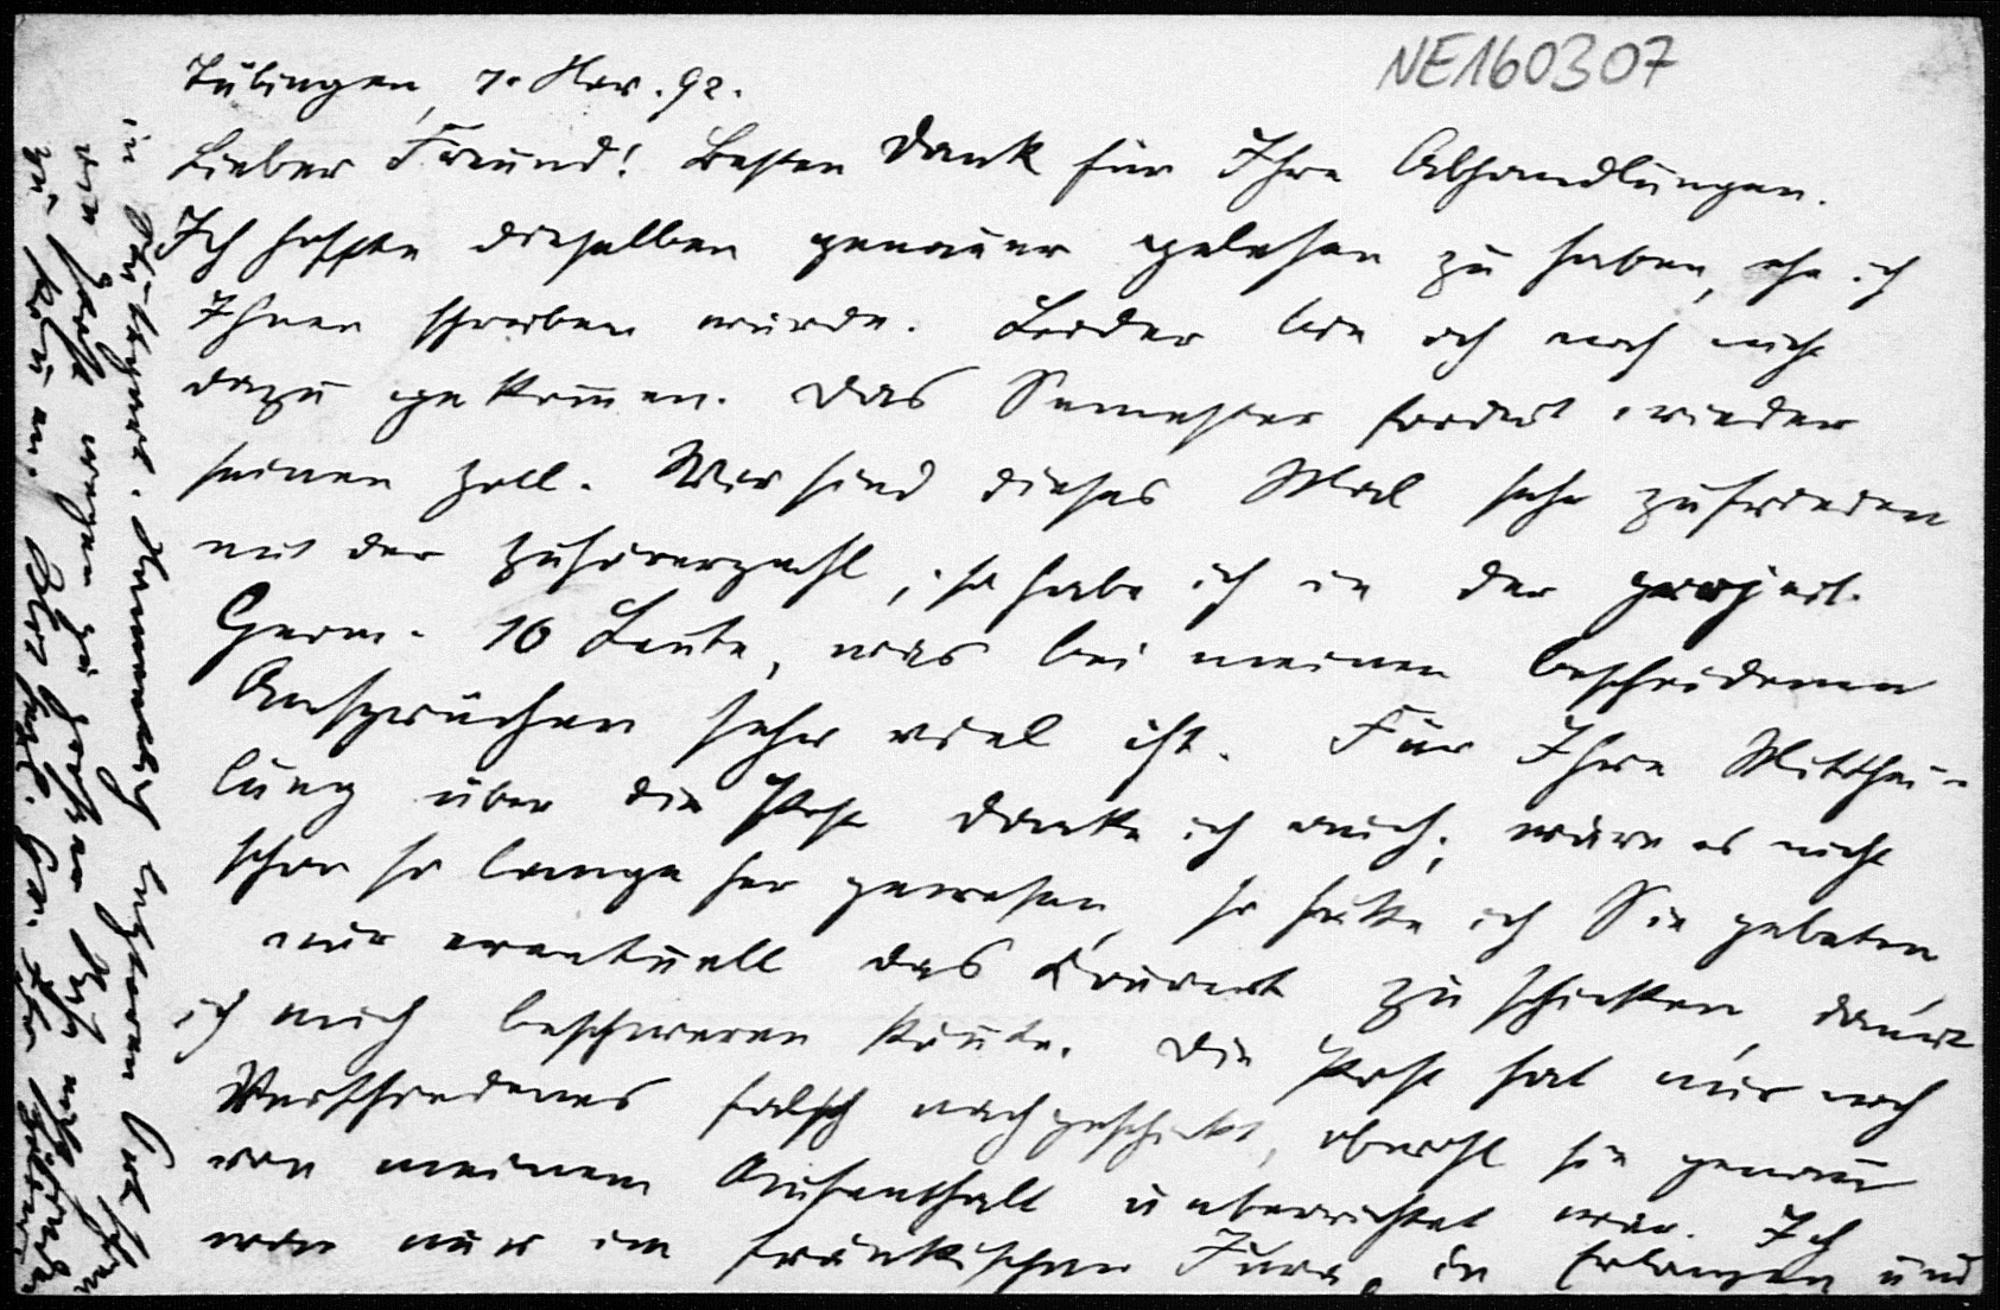 NE160307
Tübingen, 7. Nov. 92.
Lieber Freund! Besten Dank für Ihre Abhandlungen.
Ich hoffte dieselben genauer gelesen zu haben, ehe ich
Ihnen schreiben würde. Leider bin ich noch nicht
dazu gekom̄en. Das Semester fordert wieder
seinen Zoll. Wir sind dieses Mal sehr zufrieden
mit der Zuhörerzahl, so habe ich in der project.
Geom. 10 Leute, was bei meinen bescheidenen
Ansprüchen sehr viel ist. Für Ihre Mitthei-
lung über die Post danke ich auch; wäre es nicht
schon so lange her gewesen, so hätte ich Sie gebeten,
mir eventuell das Couvert zu schicken, damit
ich mich beschweren kön̄te. Die Post hat mir noch
Verschiedenes falsch nachgeschickt, obwohl sie genau
von meinem Aufenthalt unterrichtet war. Ich
war nur im fränkischen Jura, in Erlangen und
in
von wegen zu großer
zu